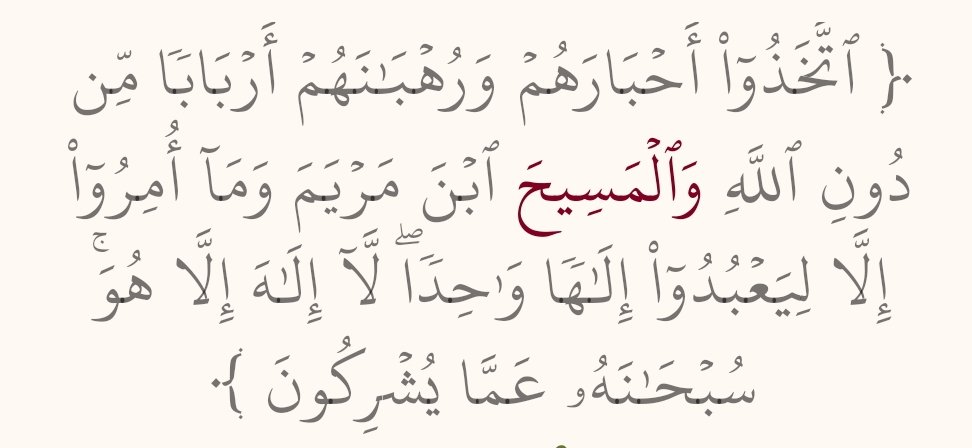 ﴿ ٱتَّخَذُوٓا۟ أَحْبَارَهُمْ وَرُهْبَـٰنَهُمْ أَرْبَابًۭا مِّن
دُونِ ٱللَّهِ وَٱلْمَسِيحَ ٱبْنَ مَرْيَمَ وَمَآ أُمِرُوٓا۟
إِلَّا لِيَعْبُدُوٓا۟ إِلَـٰهًۭا وَٰحِدًۭا ۖ لَّآ إِلَـٰهَ إِلَّا هُوَ ۚ
سُبْحَـٰنَهُۥ عَمَّا يُشْرِكُونَ ﴾